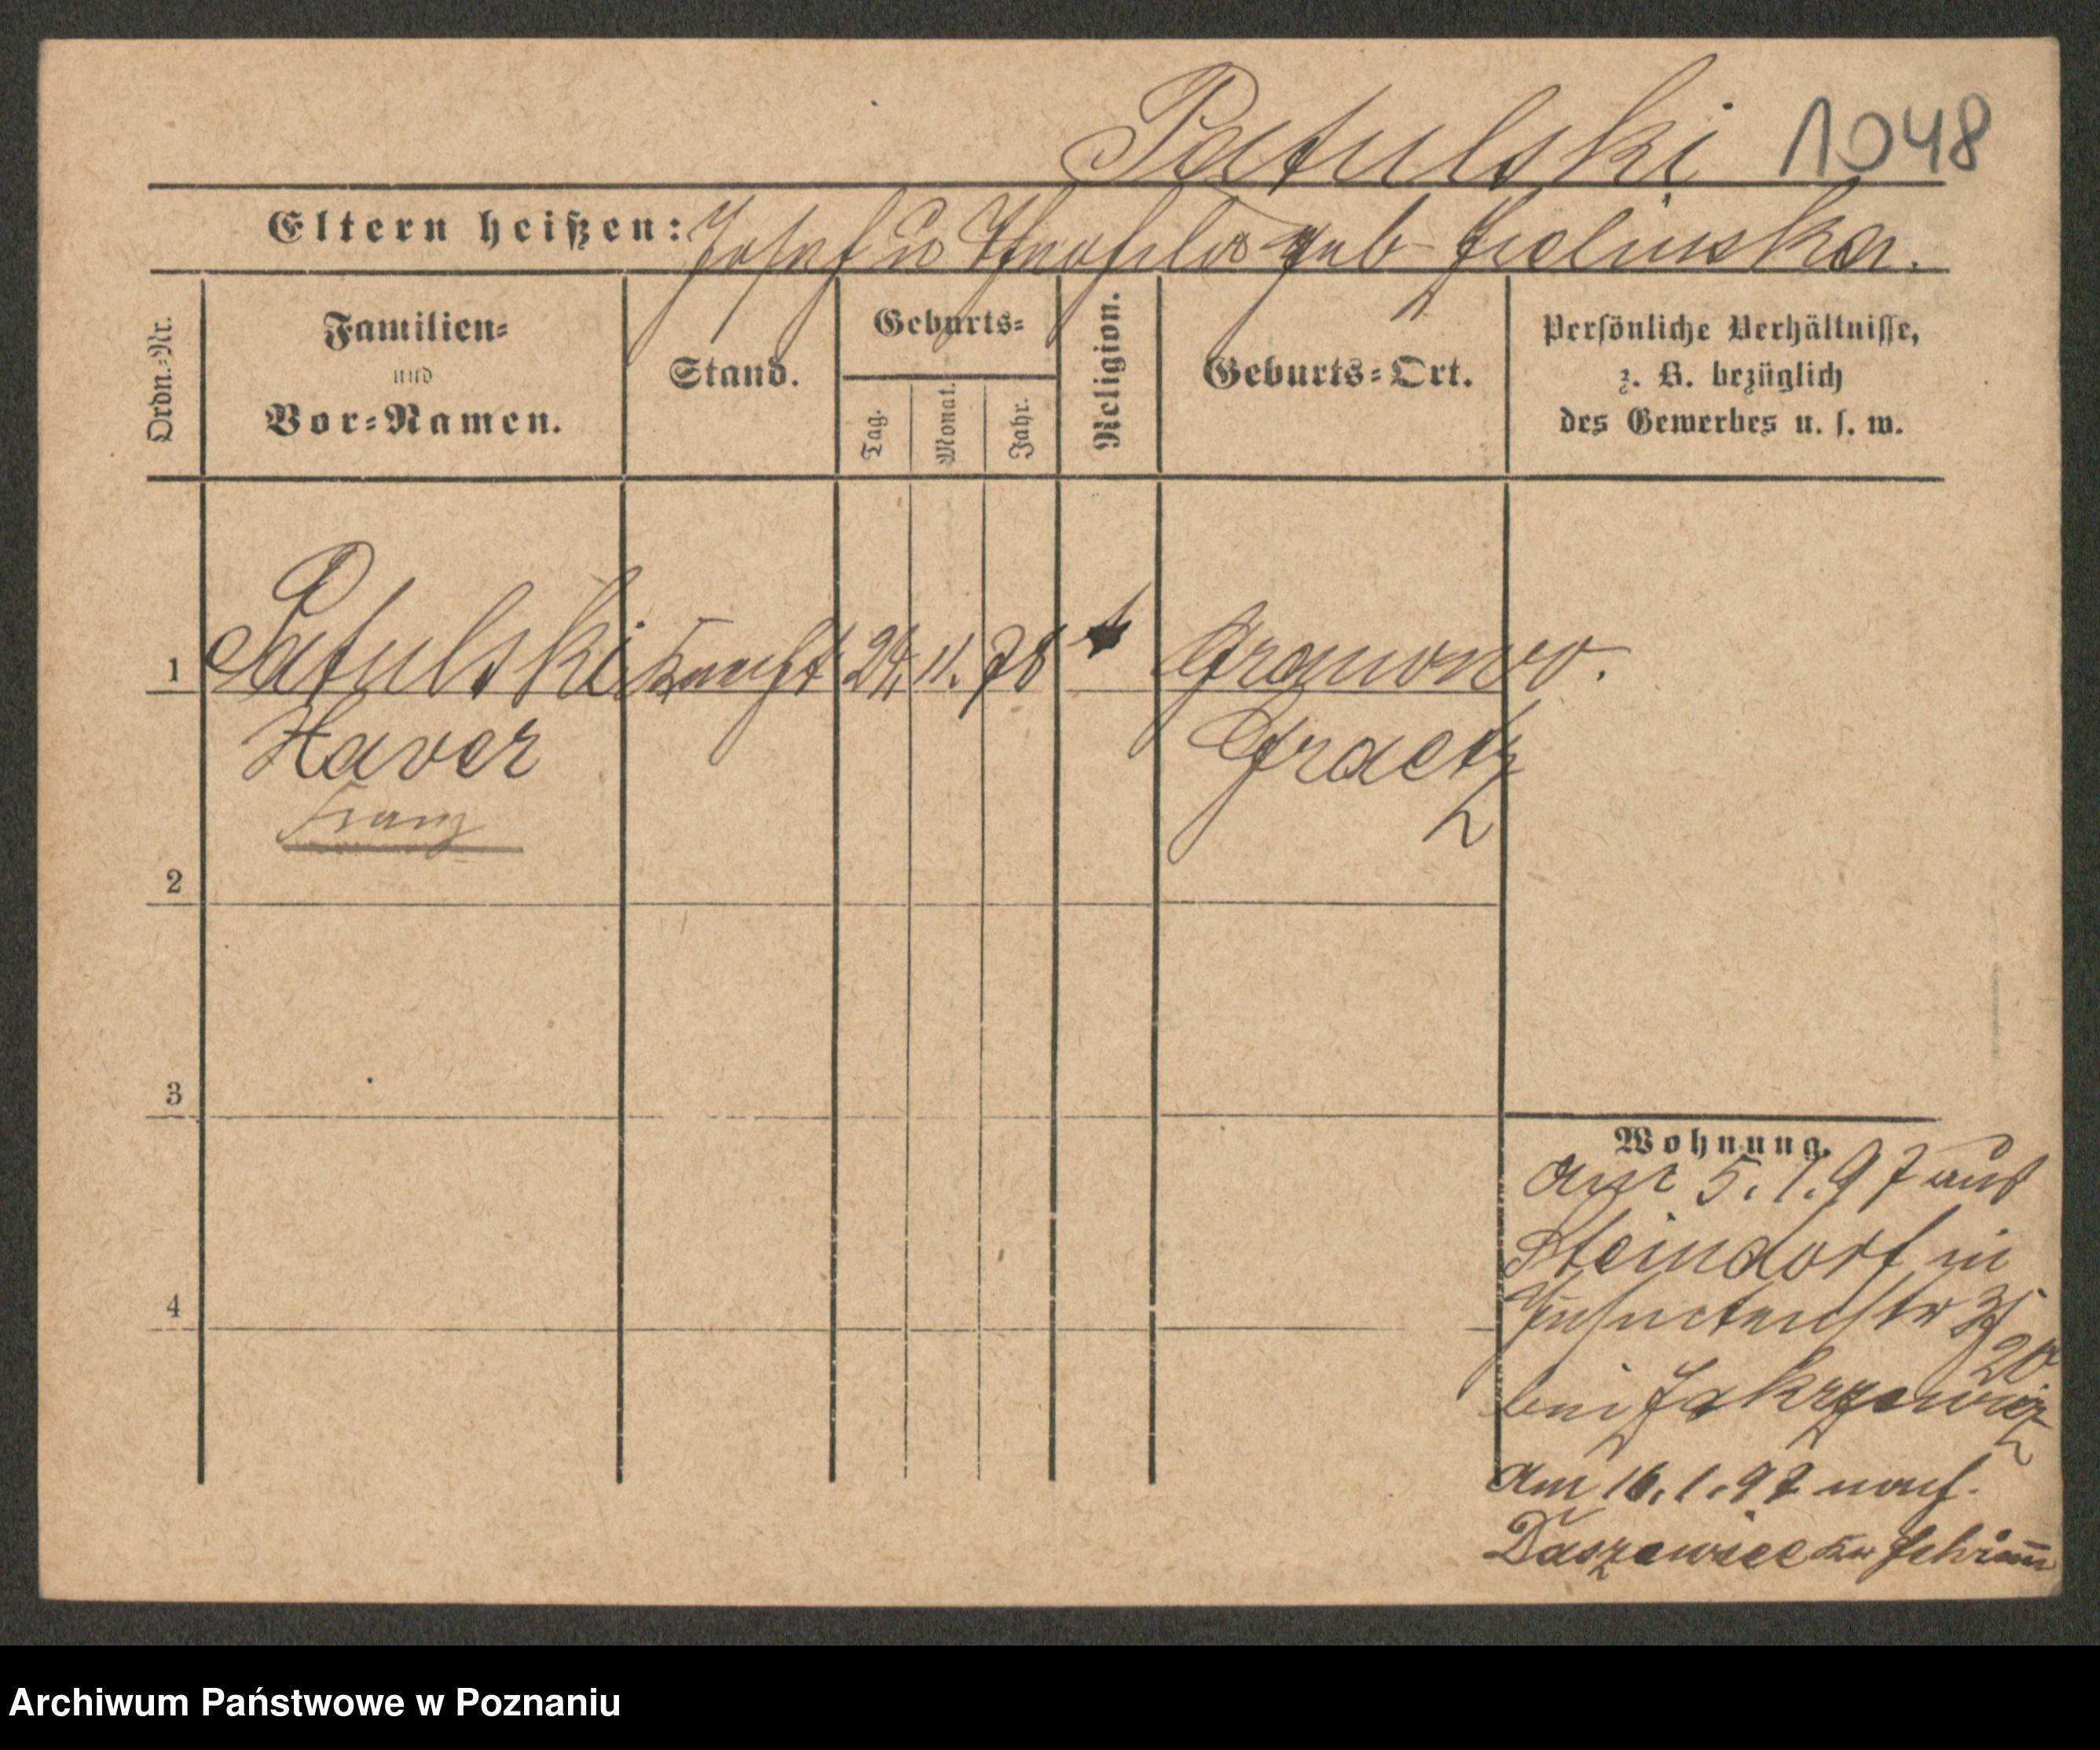 Patulski 1048
Eltern heißen: Josef u Theofila geb Zielinska.
Ordn.-Nr.
Familien-
und
Vor-Namen.
Stand.
Geburts-
Tag.
Monat.
Jahr.
Religion.
Geburts-Ort.
Persönliche Verhältnisse,
z. B. bezüglich
des Gewerbes u. s. w.
1 Patulski Knecht 24. 11. 78 k Granowo.
Xaver Graetz
Franz
2
3
4
Wohnung.
Am 5.1.97 aus
Steindorf in
20
bei Zakrzewicz
Am 16.1.97 nach
Daszewice Kr Schrim̅
Archiwum Państwowe w Poznaniu